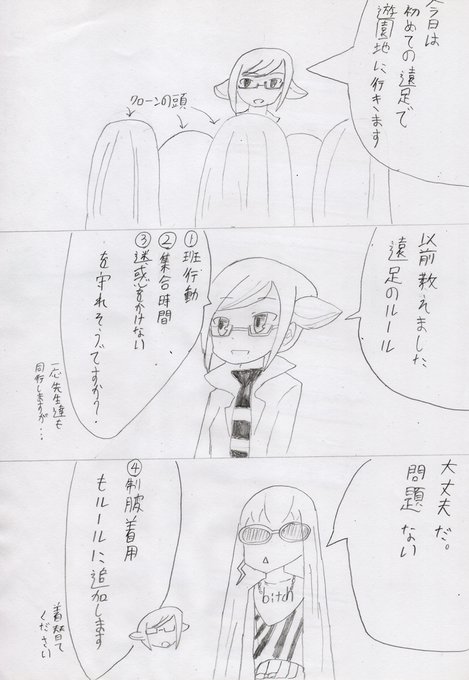 今日は
初めての遠足で
遊園地に行きます
クローンの頭
以前教えました
遠足のルール
①班行動
②集合時間
③迷惑をかけない
を守れそうですか?
一応先生達も
同行しますが・・・
大丈夫だ。
問題ない
bitch
④制服着用
もルールに追加します
着替えて
ください